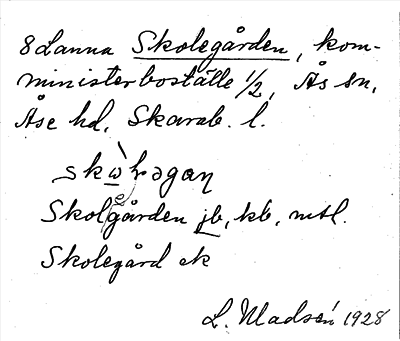 8 Lanna Skolegården, kom-
ministerboställe 1/2, Ås sn,
Åse hd, Skarab. l.
Skolegården jb, kb, mtl.
Skolegård ek
L. Madsén 1928